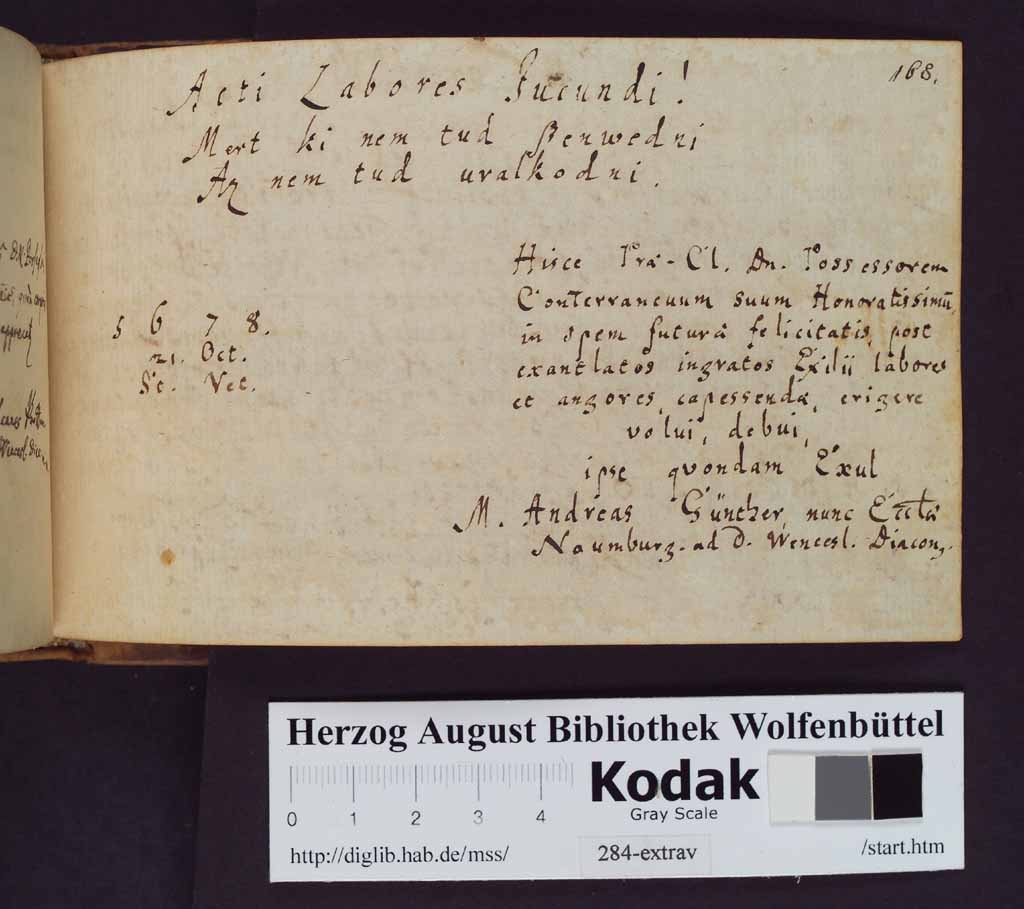 168.
Acti Labores Jucundi!
Mert ki nem tud Szenwedni
Az nem tud uralkodni.
Hisce Præ-Cl. Dn. Possessorem
Conterraneuum suum Honoratissimū,
in spem futuræ felicitatis, post
exantlatos ingratos Exilii labores
et angores, capessendæ, erigere
volui, debui,
ipse qvondam Exul
M. Andreas Günther, nunc Eccl̄æ
Naumburg. ad D. Wencesl. Diacon9.
5 6 7 8.
21. Oct.
St. Vet.
Herzog August Bibliothek Wolfenbüttel
0 1 2 3 4
Kodak
Gray Scale
http://diglib.hab.de/mss/
284-extrav
/start.htm